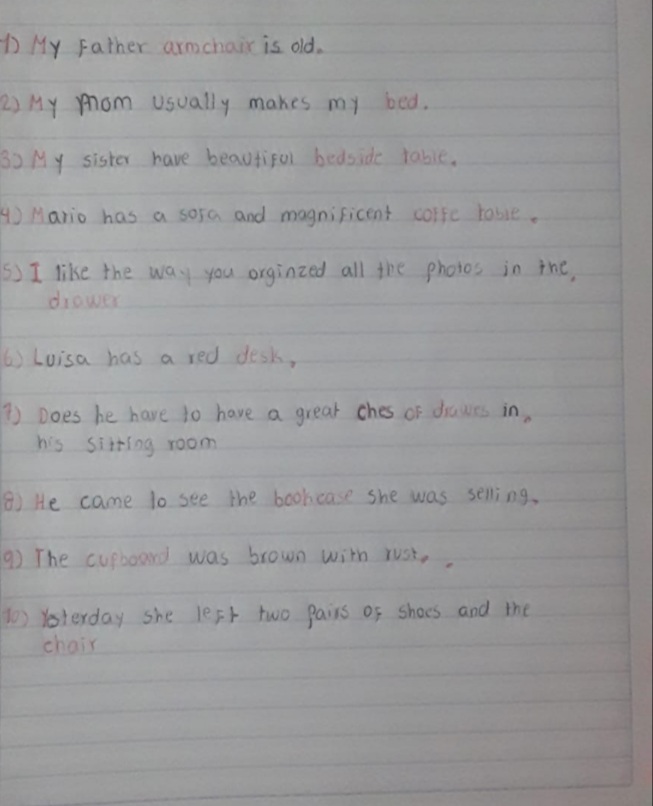 1) My Father armchair is old.
2) My mom usually makes my bed.
3) My sister have beautiful bedside table.
4) Mario has a sofa and magnificent coffe table.
5) I like the way you orginzed all the photos in the.
drawer
6) Luisa has a red desk,
7) Does he have to have a great ches of drawes in.
his sitting room
8) He came to see the bookcase she was selling.
9) The cupboard was brown with rust. .
10) Ysterday she left two pairs of shoes and the
chair